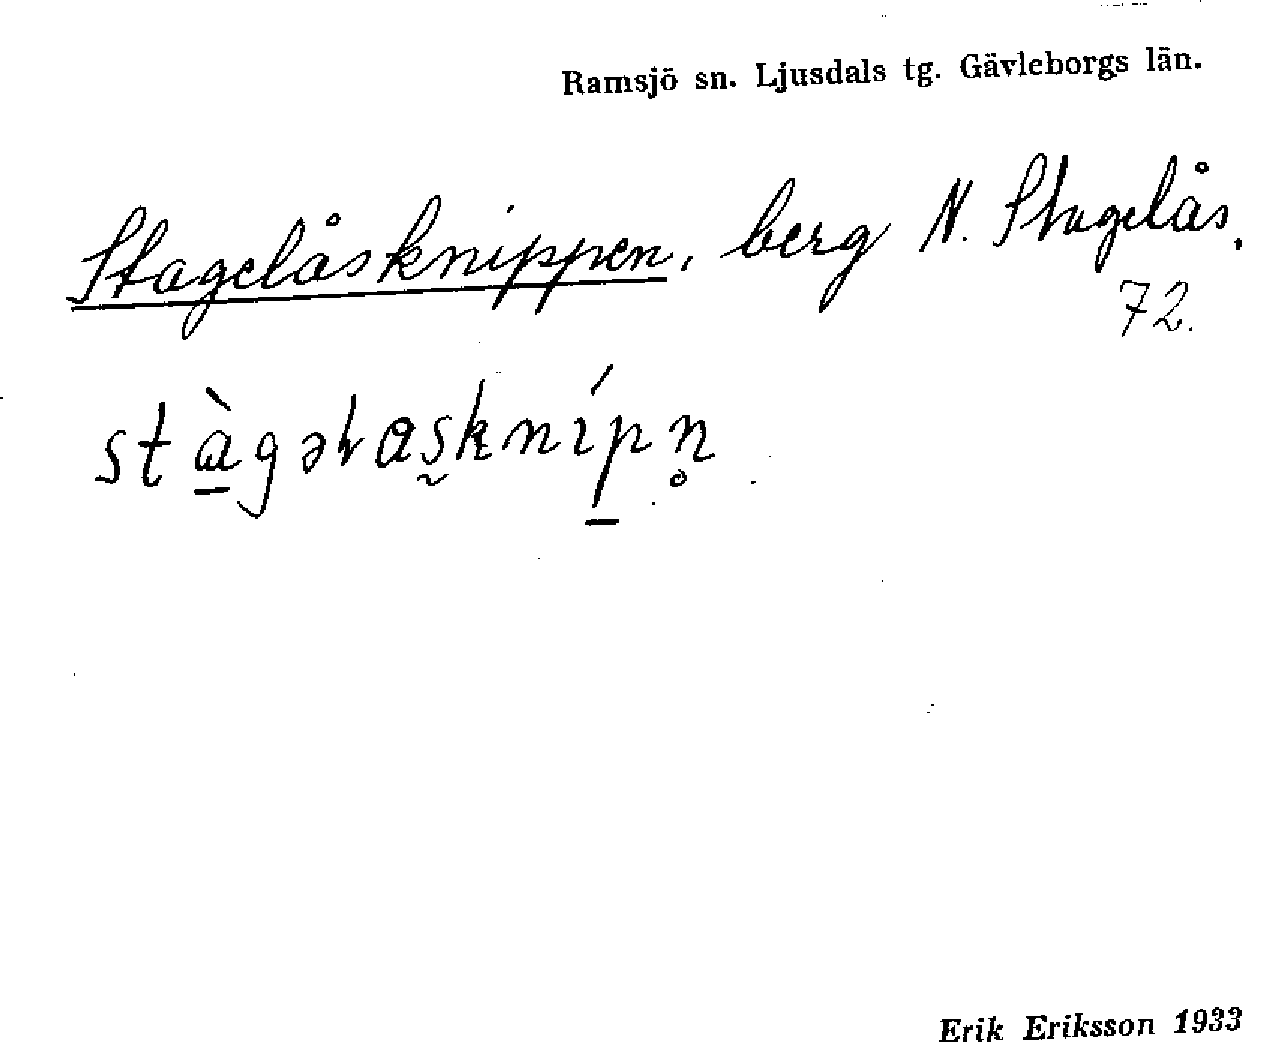 Ramsjö sn. Ljusdals tg. Gävleborgs län.
Stagelåsknippen, berg N. Stagelås.
72.
stɑ̱̀gəƚas̰knı̱́pn̥
Erik Eriksson 1933